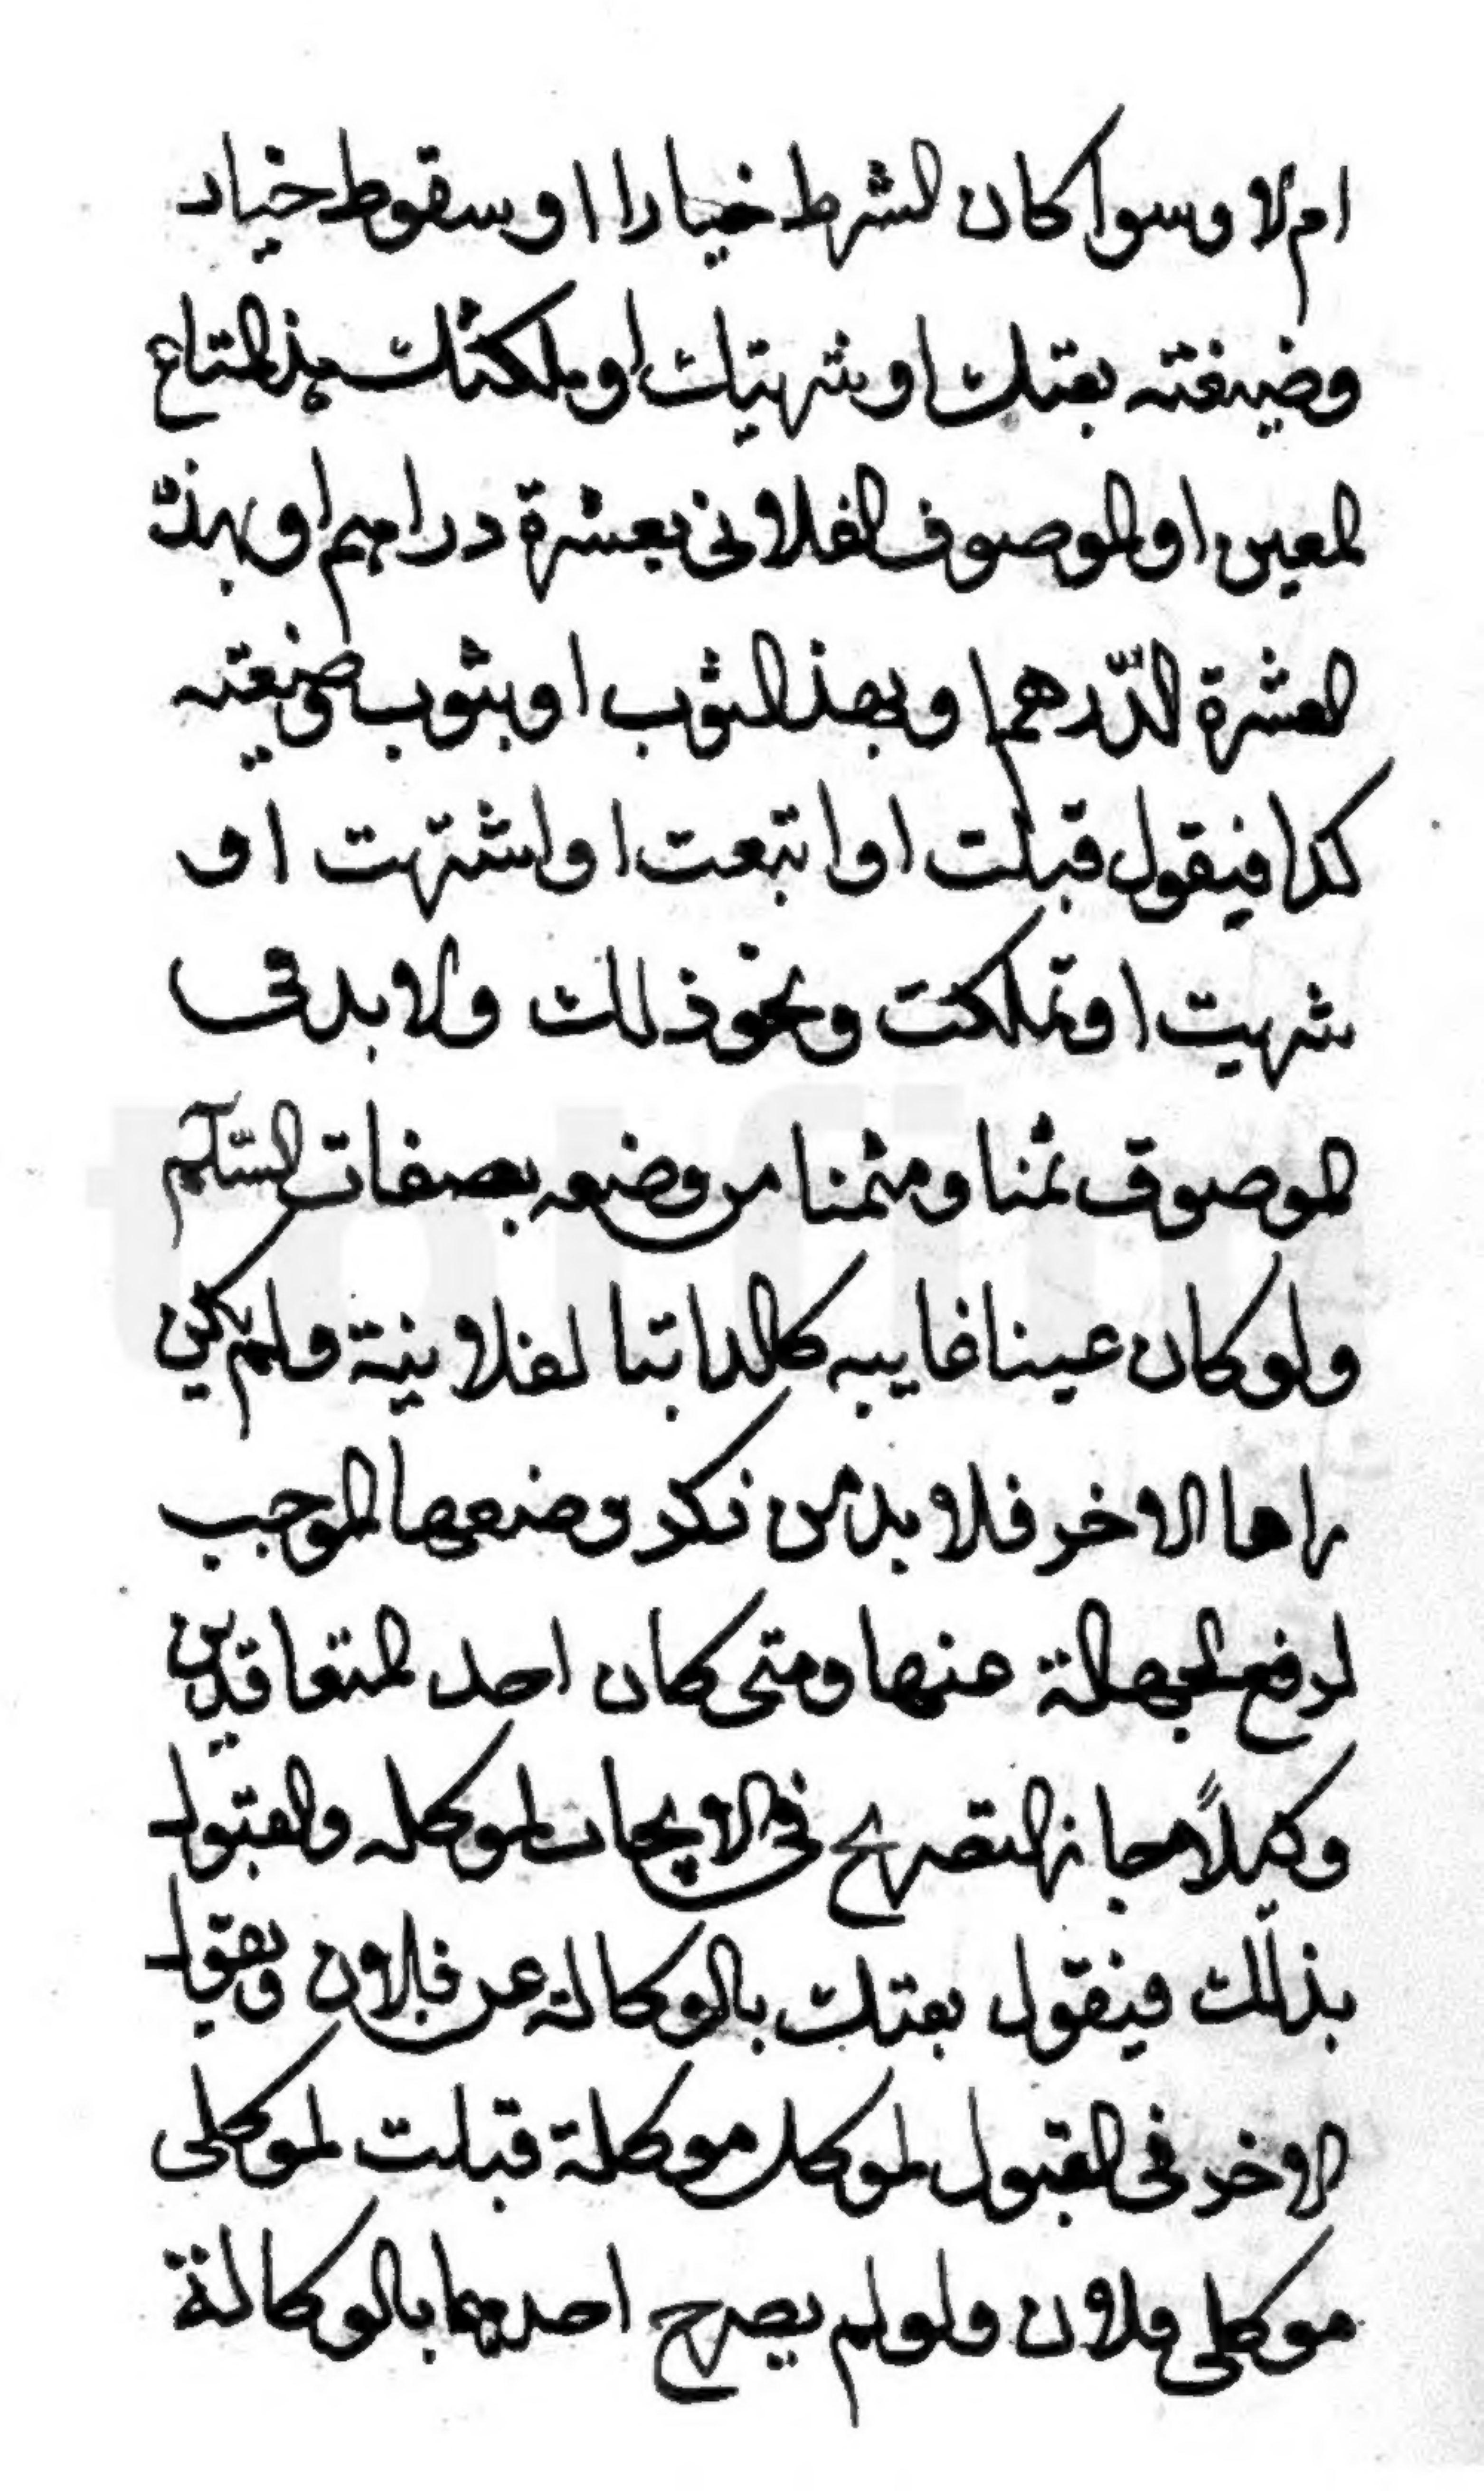 ام لا وسوا كان الشرط خيارا او سقوط خيار
وضيغته بعتك او شريتك او ملكتك هذ المتاع
المعين او الموصوف الفلانى بعشرة دراهم او بهذه
العشرة الدّرهم او بهذ الثوب او بثوب صفيعته
كدا فيقول قبلت او ابتعت او اشتريت او
شريت او تملكت ونحو ذلك ولا بد فى
الموصوف ثمنا ومثمنا من وضعه بصفات السّلم
ولو كان عينا غايبه كالدابتا لفلانية ولم يكن
راها الاخر فلا بد من ذكر وضعها الموجب
لرفع الجهالة عنها ومتى كان احد المتعاقدين
وكيلاً جاز التصريح فى الايجاب لموكله والقبول
بذلك فيقول بعتك بالوكالة عن فلان ويقول
الاخر فى القبول لموكل موكلة قبلت لموكلى
موكلى فلان ولو لم يصرح احدهما بالوكالة